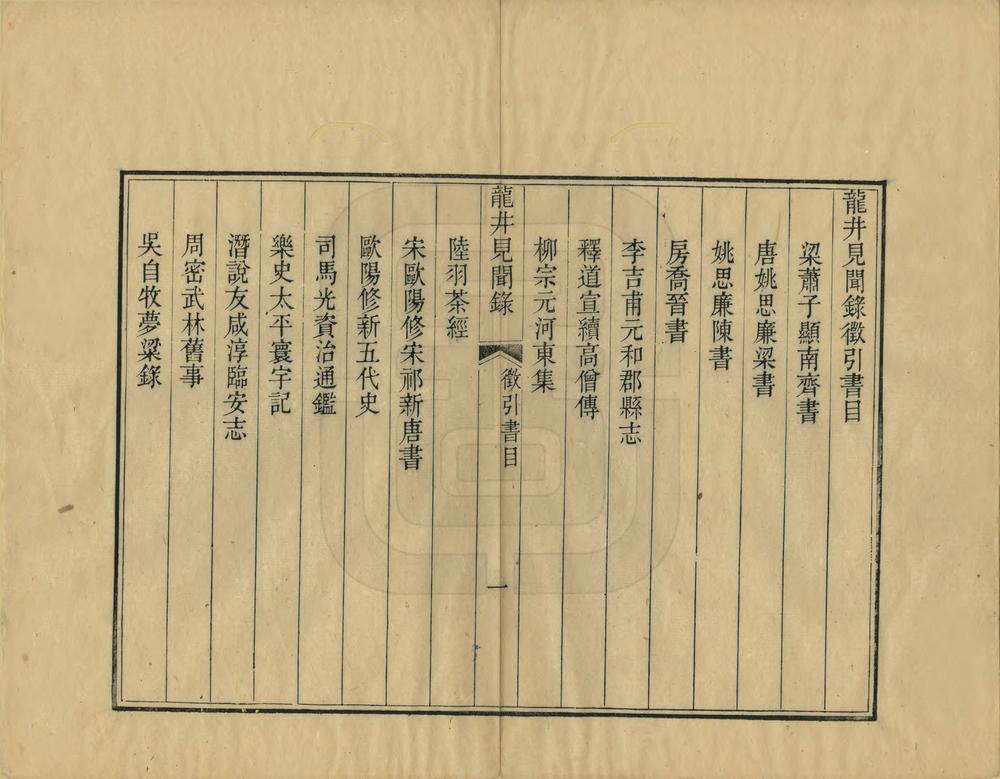 龍井見聞錄徵引書目
梁蕭子顯南齊書
唐姚思廉梁書
姚思廉陳書
房喬晉書
李吉甫元和郡縣志
釋道宣續高僧傳
柳宗元河東集
龍井見聞錄
徵引書目
一
陸羽茶經
宋歐陽修宋祁新唐書
歐陽修新五代史
司馬光資治通鑑
樂史太平寰宇記
潛說友咸淳臨安志
周密武林舊事
吳自牧夢粱錄